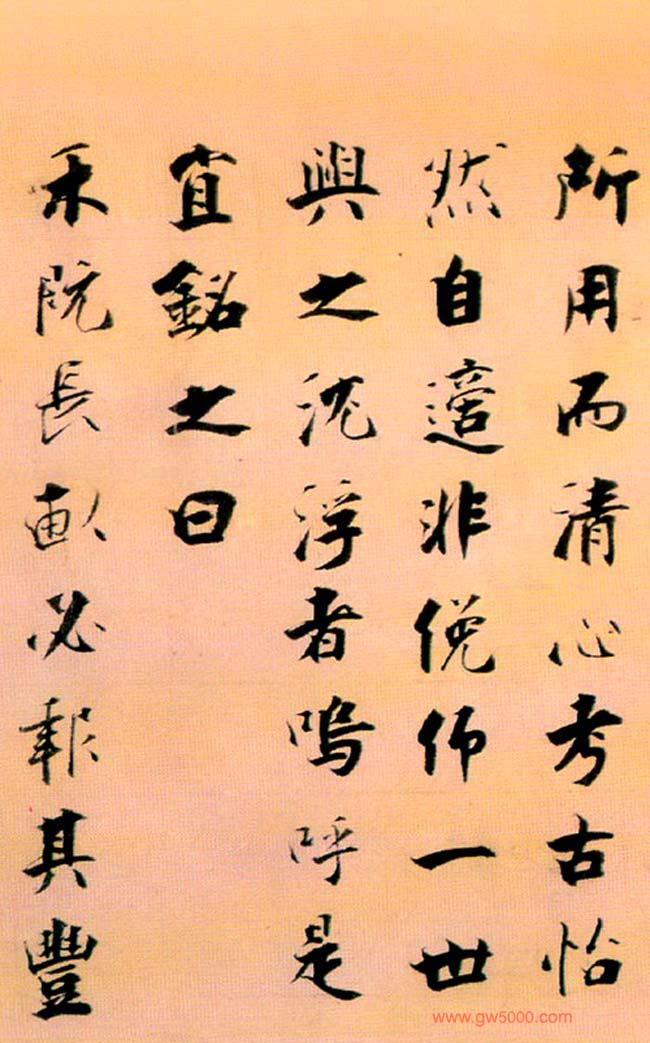 所用而清心考古怡
然自適非俛仰一世
與之沈浮者嗚呼是
宜銘之曰
禾既長畝必報其豐
www.gw5000.com